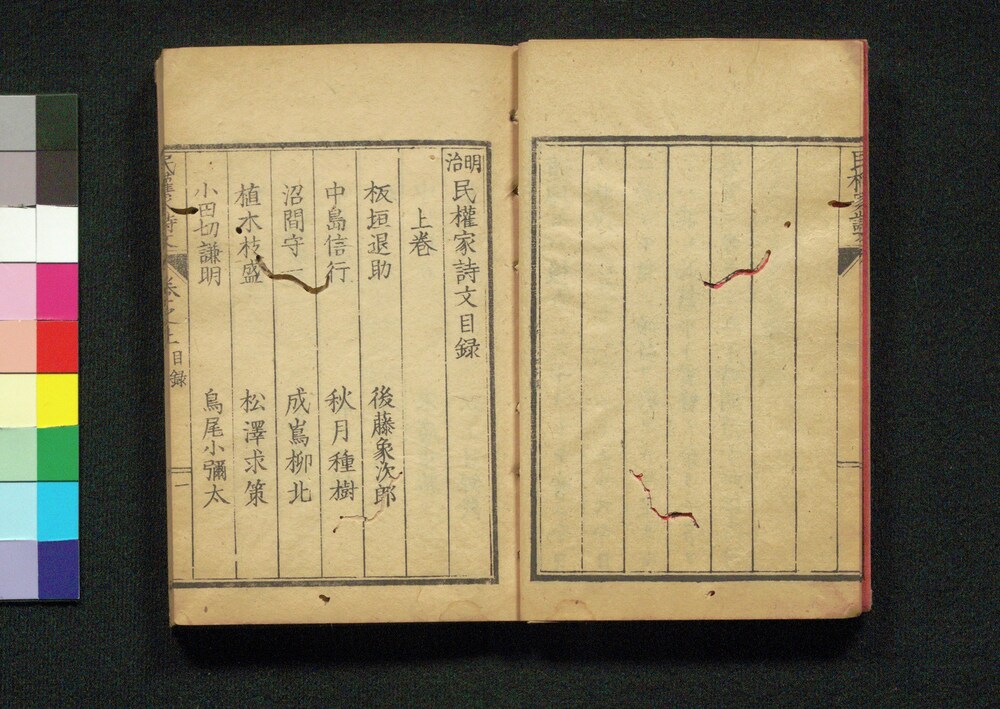 民權家詩文
明治民權家詩文目録
上巻
板垣退助　後藤象次郎
中島信行　秋月種樹
沼間守一　成嶌柳北
植木枝盛　松澤求策
小田切謙明　鳥尾小彌太
民權家詩文　巻之上目録　一